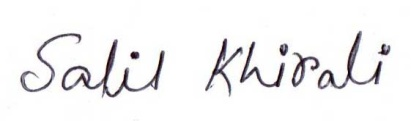 Salil Khirali